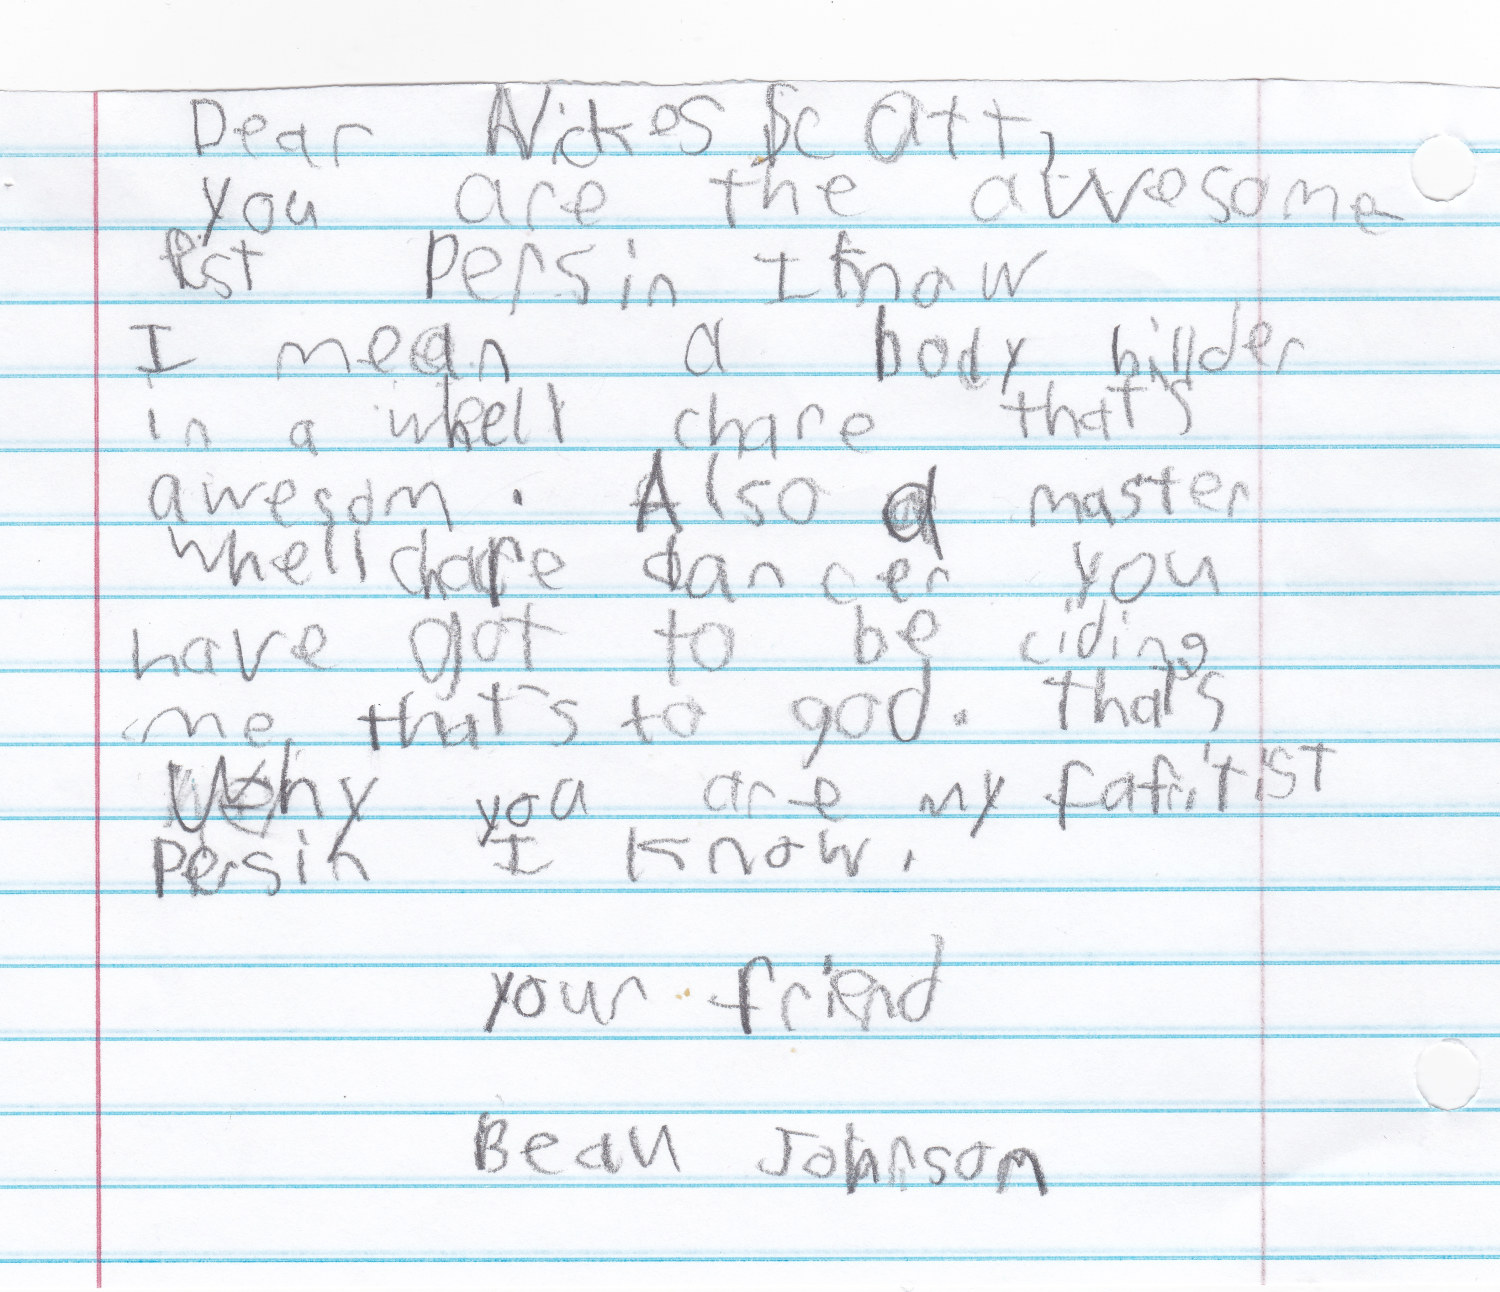 Dear Nickes Scott,
you are the awesome
est persin I know
I mean a body billder
in a whell chare that's
awesom. Also a master
whellchare dancer you
have got to be ciding
me that's to god. that's
Why you are my fafritist
persin I know.
your friend
Beau Johnson